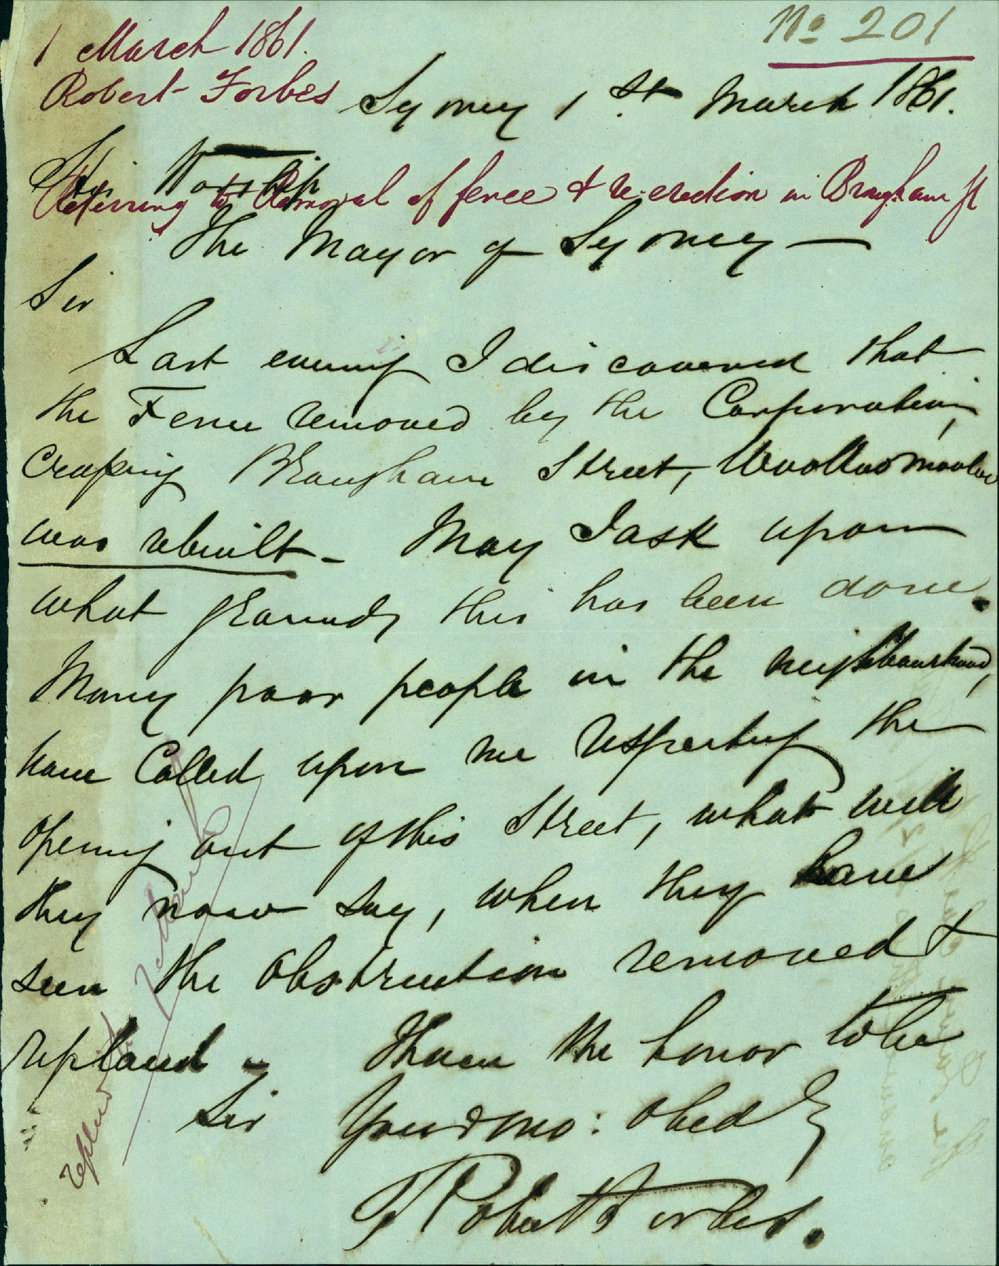 No 201
1 March 1861.
Robert Forbes
Sydney 1st March 1861.
His Worship
Referring to Removal of fence & re-erection in Brougham St
The Mayor of Sydney —
Sir
Last evening I discovered that
the Fence removed by the Corporation,
Crossing Brougham Street, Woolloomooloo
was rebuilt — May I ask upon
what grounds this has been done.
Many poor people in the neighbourhood,
have Called upon me respecting the
opening out of this Street, what will
they now say, when they have
seen the obstruction removed &
replaced — I have the honor to be
Sir Your mo: obed
Robert Forbes.
replied to